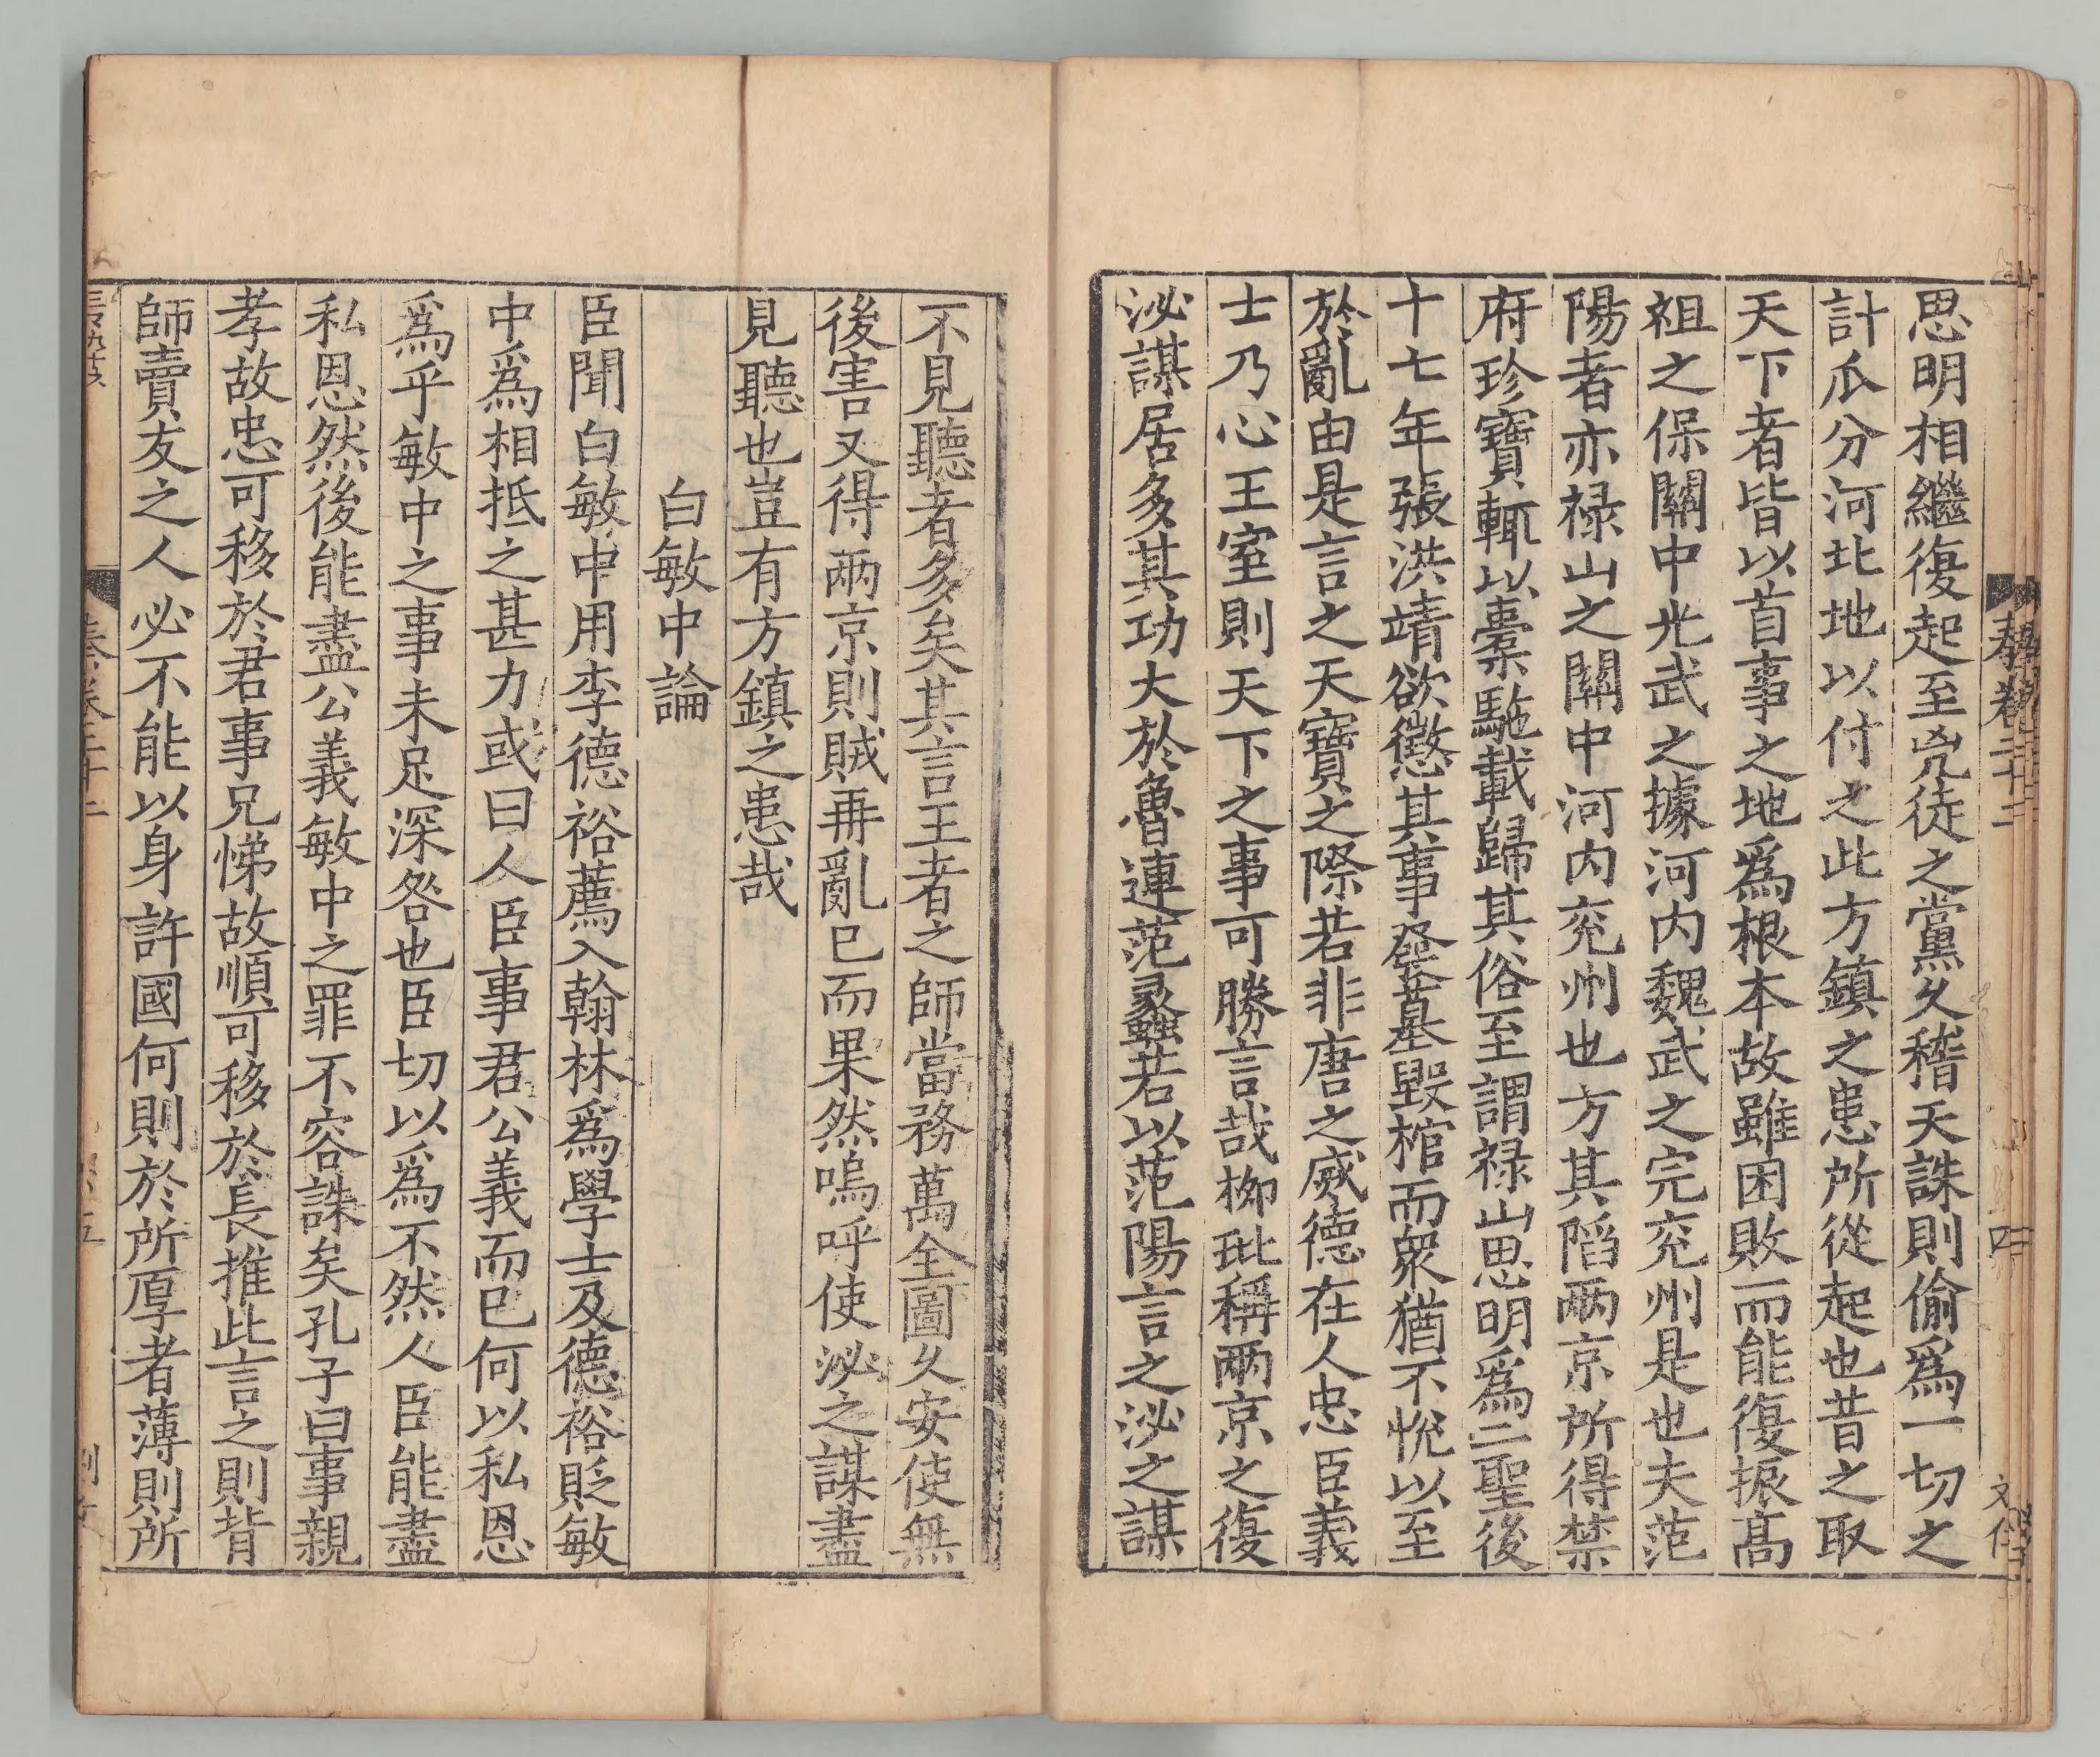 思明相繼復起至兇徒之黨久稽天誅則偷爲一切之
計瓜分河北地以付之此方鎮之患所從起也昔之取
天下者皆以首事之地爲根本故雖困敗而能復振髙
祖之保關中光武之據河内魏武之完兖州是也夫范
陽者亦禄山之關中河内兖州也方其䧟兩京所得禁
府珍寶輒以橐駞載歸其俗至謂禄山思明爲二聖後
十七年張洪靖欲懲其事發墓毀棺而衆猶不恱以至
於亂由是言之天寶之際若非唐之威德在人忠臣義
士乃心王室則天下之事可勝言哉栁玭稱兩京之復
泌謀居多其功大於魯連范蠡若以范陽言之泌之謀
不見聽者多矣其言王者之師當務萬全圖久安使無
後害又得兩京則賊再亂已而果然嗚呼使泌之謀盡
見聽也豈有方鎮之患哉
白敏中論
臣聞白敏中用李德裕薦入翰林爲學士及德裕貶敏
中爲相抵之甚力或曰人臣事君公義而已何以私恩
爲乎敏中之事未足深咎也臣切以爲不然人臣能盡
私恩然後能盡公義敏中之罪不容誅矣孔子曰事親
孝故忠可移於君事兄悌故順可移於長推此言之則背
師賣友之人必不能以身許國何則於所厚者薄則所